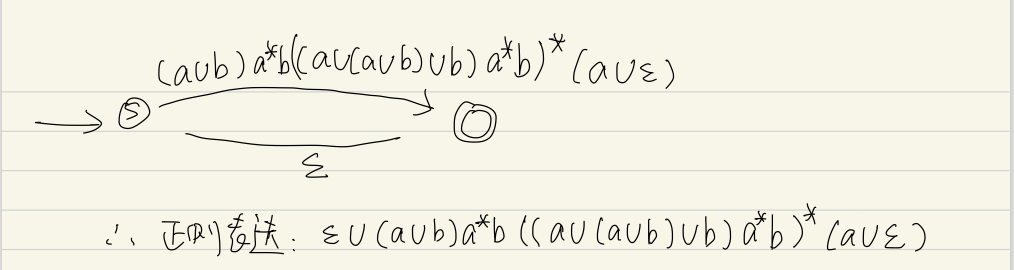 (a∪b)a*b((a∪(a∪b)∪b)a*b)*(a∪ε)
S
ε
∴ 正则表达: ε∪(a∪b)a*b((a∪(a∪b)∪b)a*b)*(a∪ε)